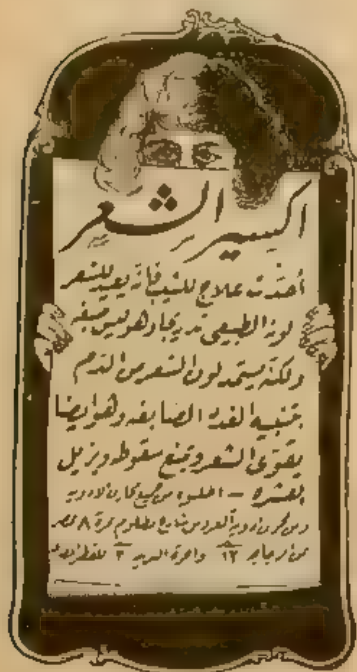 اكسير الشعر
أحدث علاج للشيب فانه يعيد للشعر
لونه الطبيعى تدريجا وهو ليس صبغه
ولكنه يستمد لون الشعر من الدم
بتنبيه الغدد الصابغه وهو ايضا
يقوى الشعر ويمنع سقوطه ويزيل
القشره - اطلبوه من جميع مخازن الادويه
ومن مخزن ادوية العروس شارع مظلوم نمرة ٨ بمصر
ثمن الزجاجه ١٢ واجرة البريد ٣